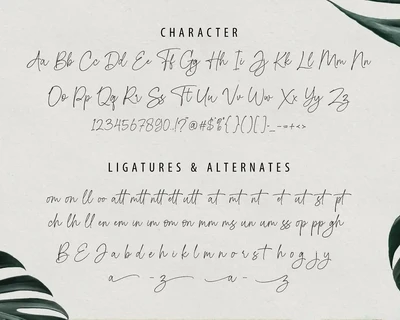 CHARACTER
Aa Bb Cc Dd Ee Ff Gg Hh Ii Jj Kk Ll Mm Nn
Oo Pp Qq Rr Ss Tt Uu Vv Ww Xx Yy Zz
1234567890.!?@#$%&{}()[]:_-=+<>
LIGATURES & ALTERNATES
om on ll oo att mtt ntt ett utt at mt nt et ut st pt
ch lh ll en em in im om on mm ms un um ss op pp gh
B E J a b d e h i k l m n o r s t h o g j y
a - z - a - z